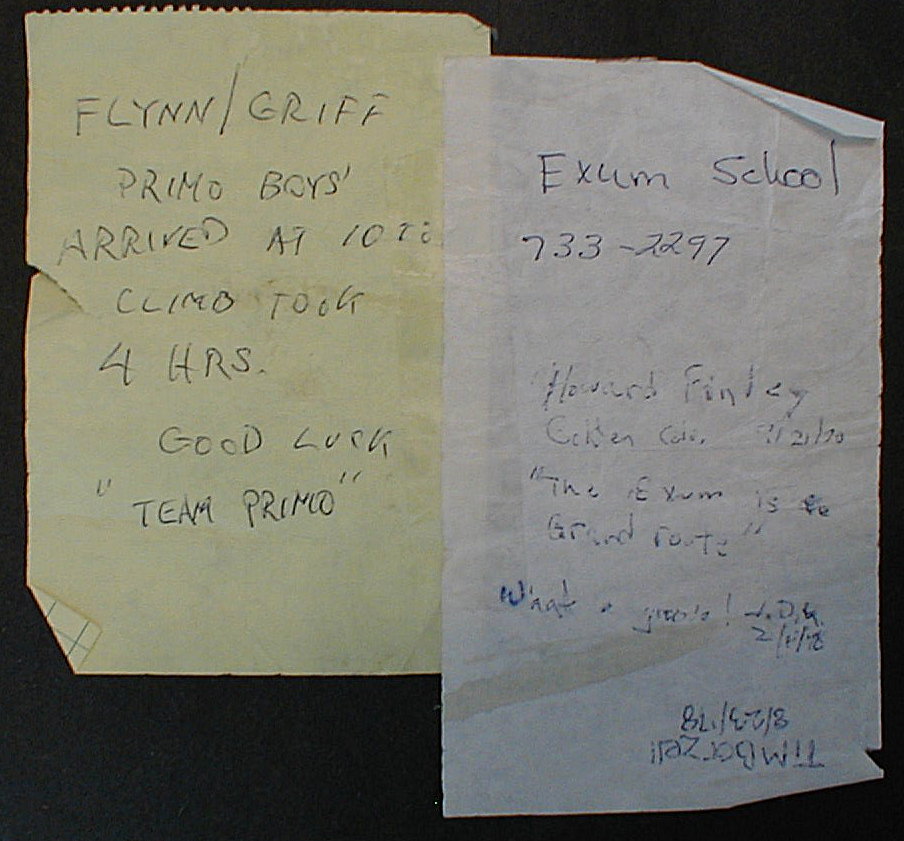 FLYNN/GRIFF
PRIMO BOYS'
ARRIVED AT 10
CLIMB TOOK
4 HRS.
GOOD LUCK
"TEAM PRIMO"
Exum School
733-2297
Howard Finley
Golden Colo.
"The Exum is
Grand route"
What a
8/23/78
Tim Borzell